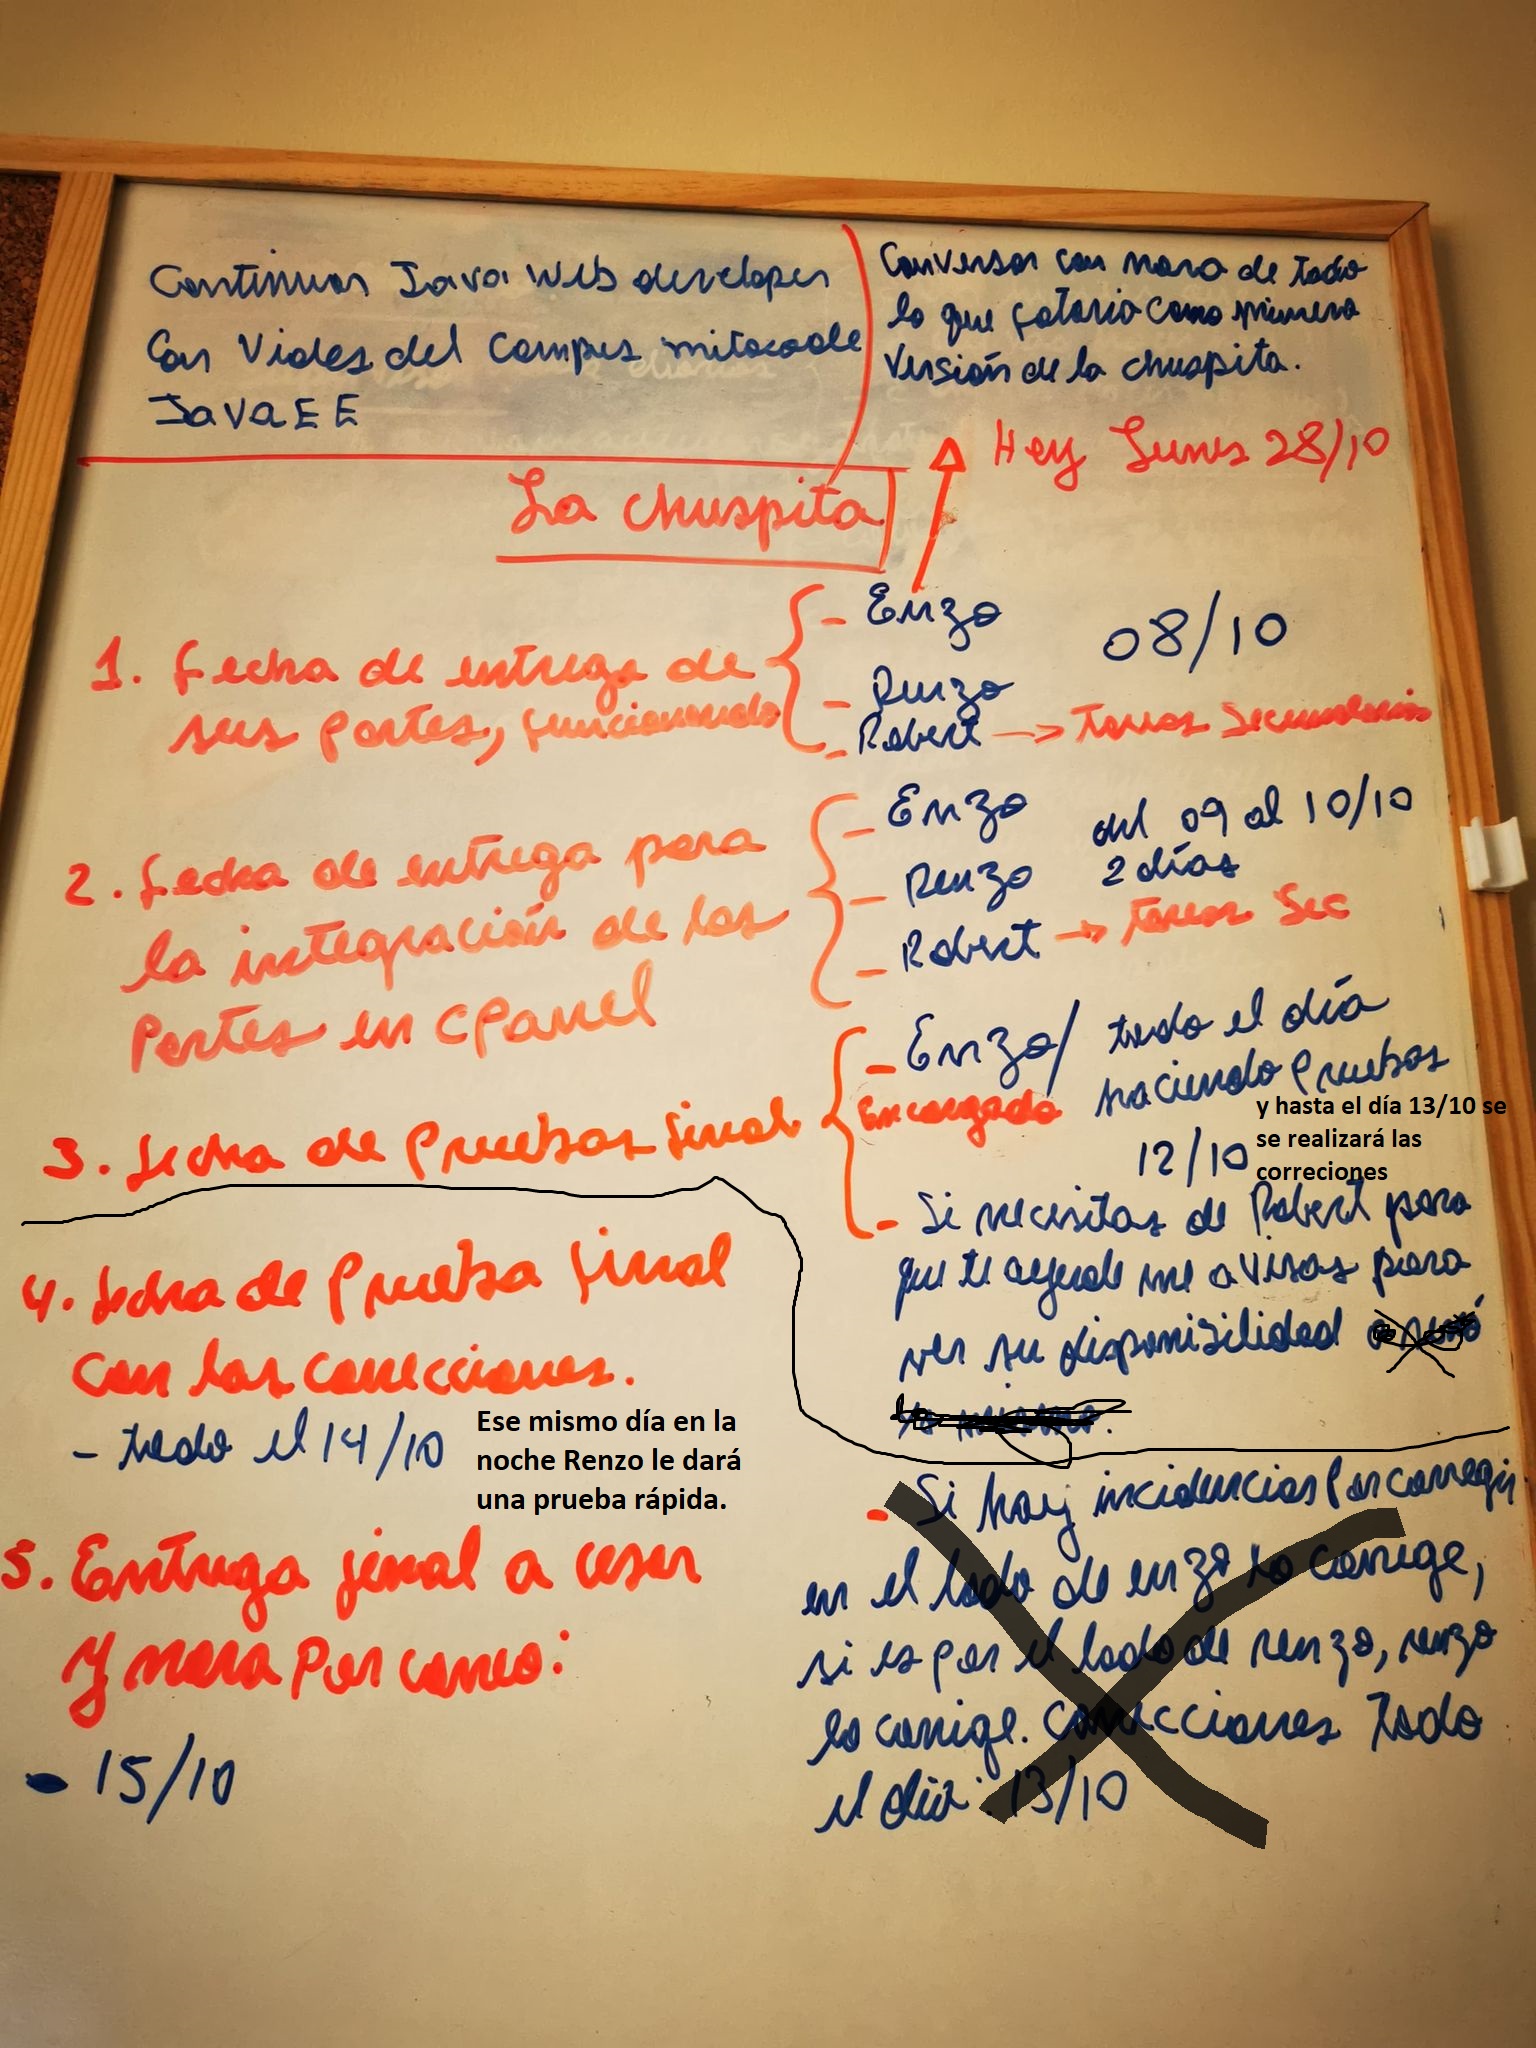 Continuar Java Web developer
Con Videos del Campus mitocode
JavaEE
Conversar con nara de todo
lo que faltaria como primera
Versión de la chuspita.
Hoy Lunes 28/10
La chuspita
1. Fecha de entrega de
sus partes, funcionando
- Enzo
- Renzo
- Robert → Tareas Secundarias
08/10
2. Fecha de entrega para
la integración de las
Partes en CPanel
- Enzo
- Renzo
- Robert → Tareas Sec
del 09 al 10/10
2 días
3. Fecha de Pruebas final
- Enzo/
Encargado
todo el día
haciendo Pruebas
12/10
y hasta el día 13/10 se
se realizará las
correciones
- Si necesitas de Robert para
que te ayude me avisas para
ver su disponibilidad
4. Fecha de Prueba final
con las correcciones.
- todo el 14/10
Ese mismo día en la
noche Renzo le dará
una prueba rápida.
5. Entrega final a cesar
y nara por correo:
- 15/10
- Si hay incidencias por corregir
en el lado de enzo lo corrige,
si es por el lado de renzo, renzo
lo corrige. Correcciones todo
el día: 13/10